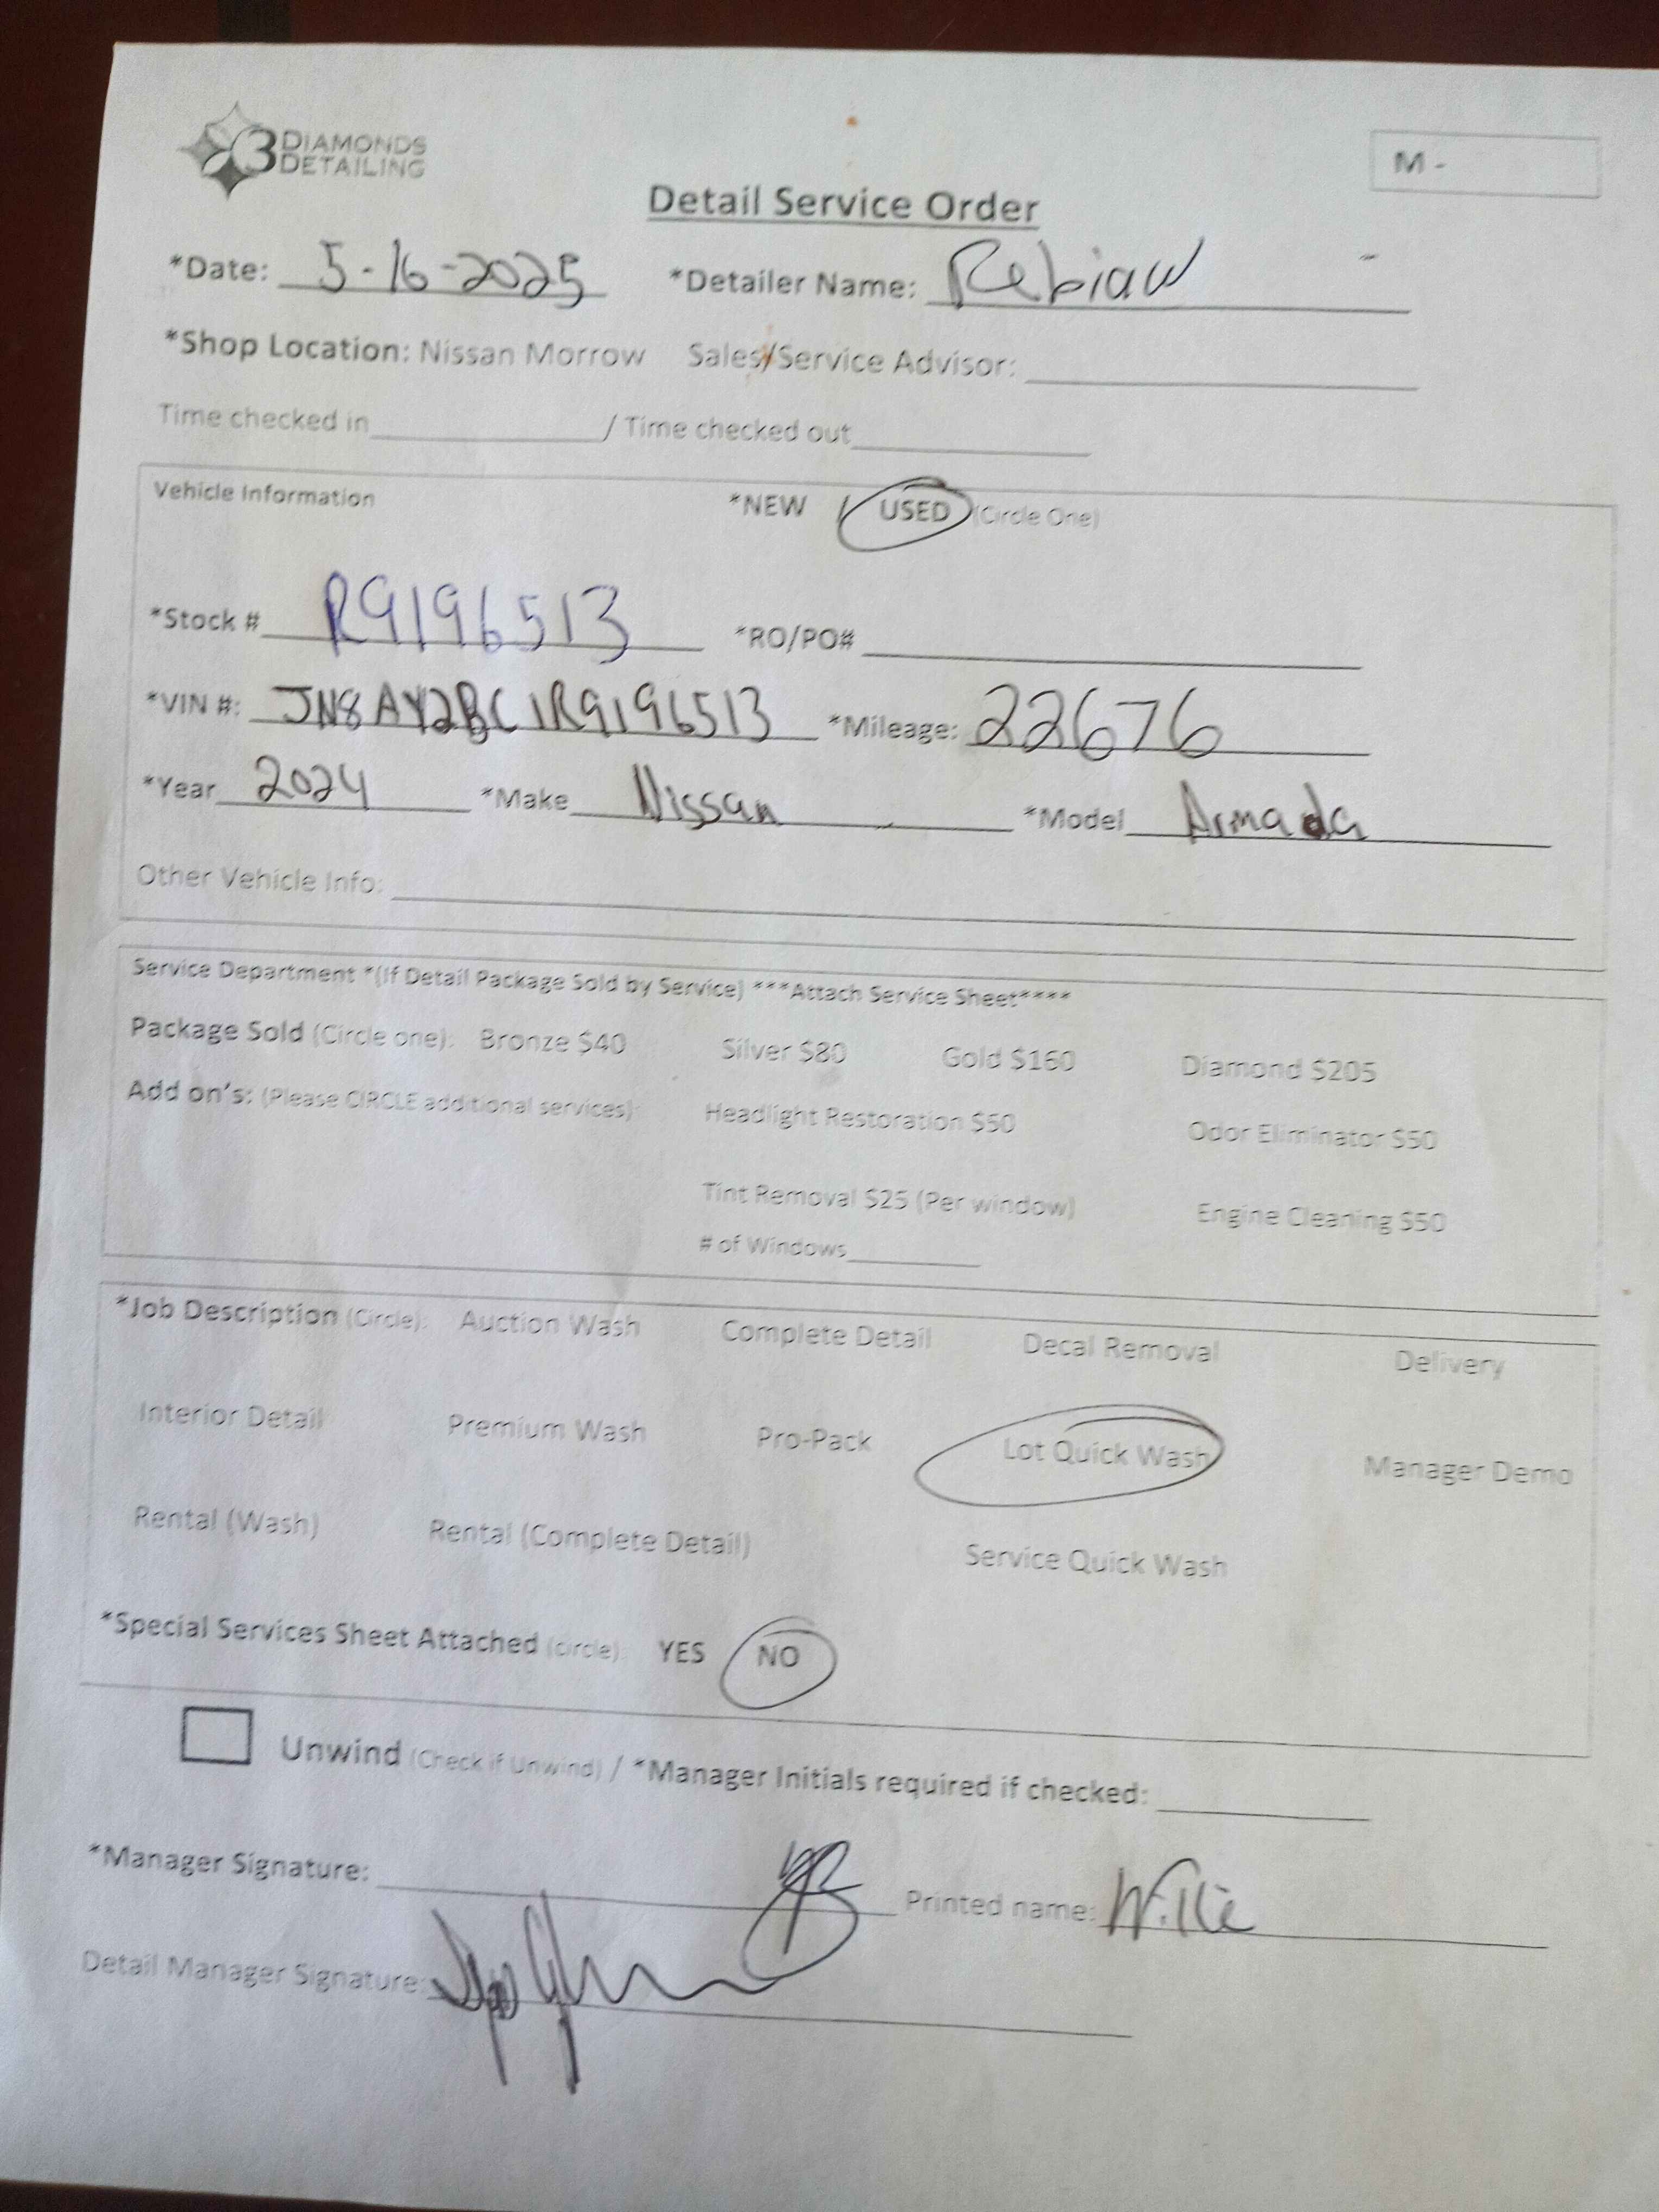 3 DIAMONDS
DETAILING
M -
Detail Service Order
*Date: 5-16-2025 *Detailer Name: Rebiaw
*Shop Location: Nissan Morrow Sales/Service Advisor:
Time checked in / Time checked out
Vehicle Information *NEW / USED (Circle One)
*Stock # R9196513 *RO/PO#
*VIN #: JN8AY2BC1R9196513 *Mileage: 22676
*Year 2024 *Make Nissan *Model Armada
Other Vehicle Info:
Service Department *(If Detail Package Sold by Service) ***Attach Service Sheet****
Package Sold (Circle one): Bronze $40 Silver $80 Gold $160 Diamond $205
Add on's: (Please CIRCLE additional services): Headlight Restoration $50 Odor Eliminator $50
Tint Removal $25 (Per window) Engine Cleaning $50
# of Windows
*Job Description (Circle): Auction Wash Complete Detail Decal Removal Delivery
Interior Detail Premium Wash Pro-Pack Lot Quick Wash Manager Demo
Rental (Wash) Rental (Complete Detail) Service Quick Wash
*Special Services Sheet Attached (circle): YES NO
Unwind (Check if Unwind) / *Manager Initials required if checked:
*Manager Signature: Printed name: Willie
Detail Manager Signature: